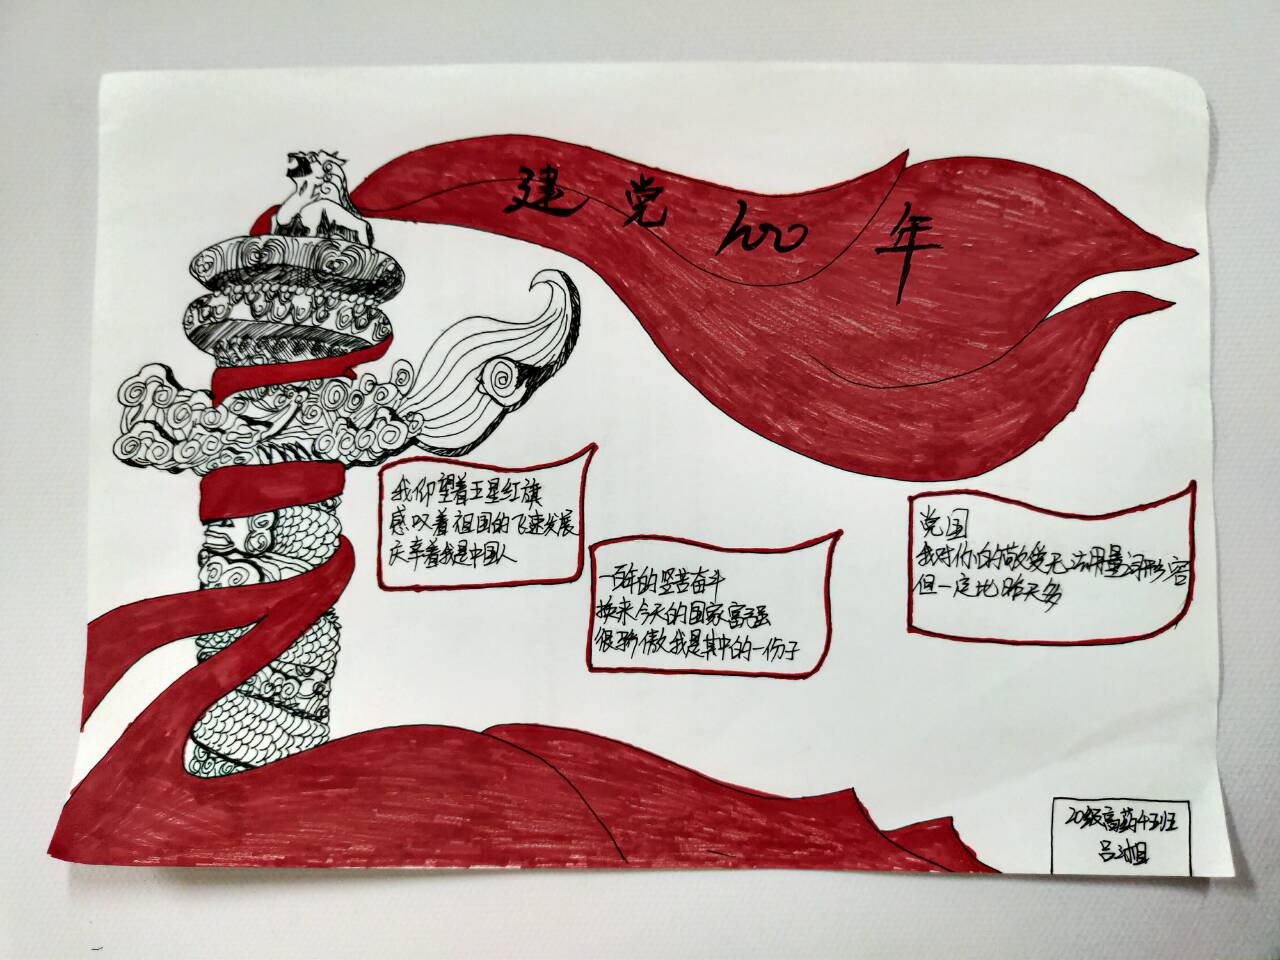 建党100年
我仰望着五星红旗
感叹着祖国的飞速发展
庆幸着我是中国人
一百年的坚苦奋斗
换来今天的国家富强
很骄傲我是其中的一份子
党国
我对你的敬爱无法用量词形容
但一定比昨天多
20级高药4班